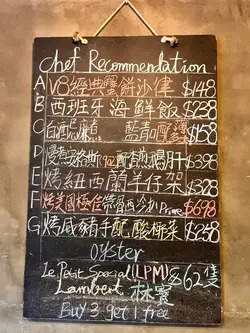 Chef Recommendation
A V8經典蟹餅沙律 $148
B 西班牙海鮮飯 $238
C 白酒忌廉煮 藍青口配薯條 $158
D 慢煮安格斯 配香煎鵝肝 $398
E 烤紐西蘭羊仔架 $328
F 烤美國極佳帶骨西冷 Prime $698
G 烤咸豬手配酸椰菜 $258
Oyster
Le Petit Special (LPM) $62隻
Lambert 林賽
Buy 3 get 1 free